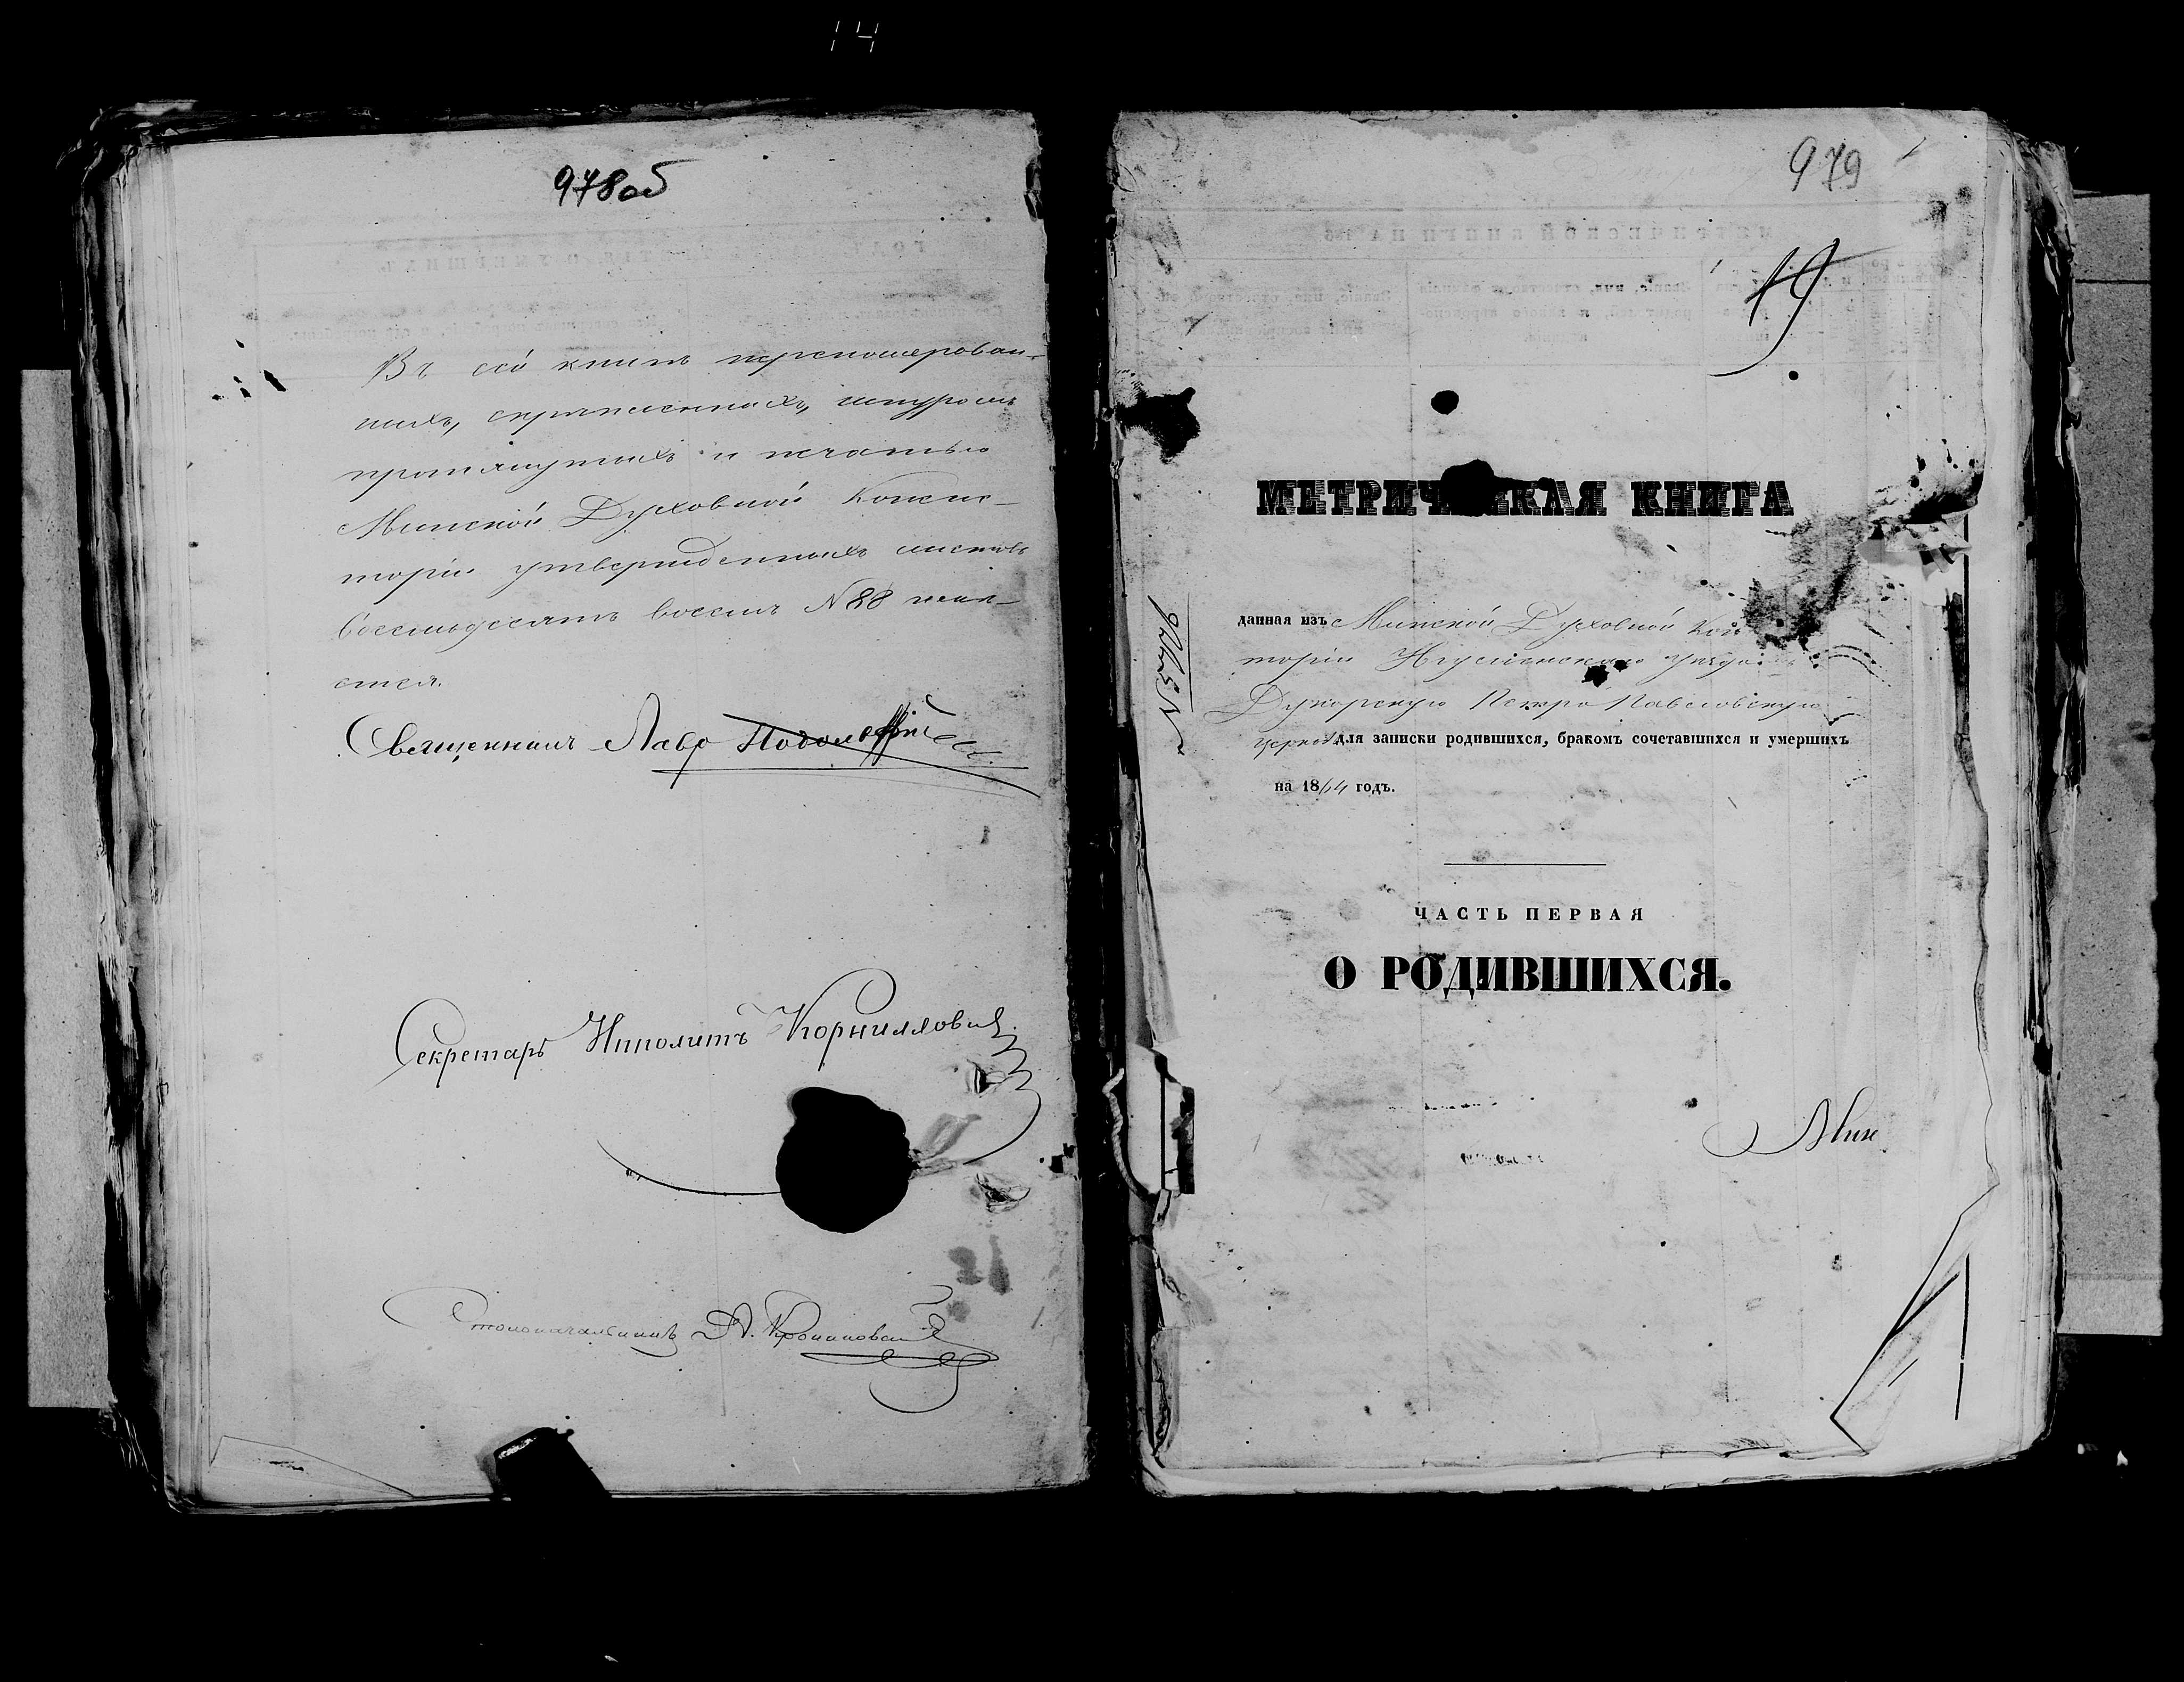 14
978об
Въ сей книгѣ перенумерован-
ныхъ, скрѣпленныхъ, шнуромъ
протянутыхъ и печатью
Минской Духовной Консис-
торіи утвержденныхъ листовъ
восемьдесятъ восемь N 88 чис-
Священникъ
Секретарь Ипполитъ Корниллович
Столоначальникъ А.
979
19
МЕТРИЧЕСКАЯ КНИГА
данная изъ Минской Духовной Кон
торіи Игуменскаго уѣзда въ
Дукорскую Петро Павловскую
церковь для записки родившихся, бракомъ сочетавшихся и умершихъ
на 1864 годъ.
ЧАСТЬ ПЕРВАЯ
О РОДИВШИХСЯ.
Мин